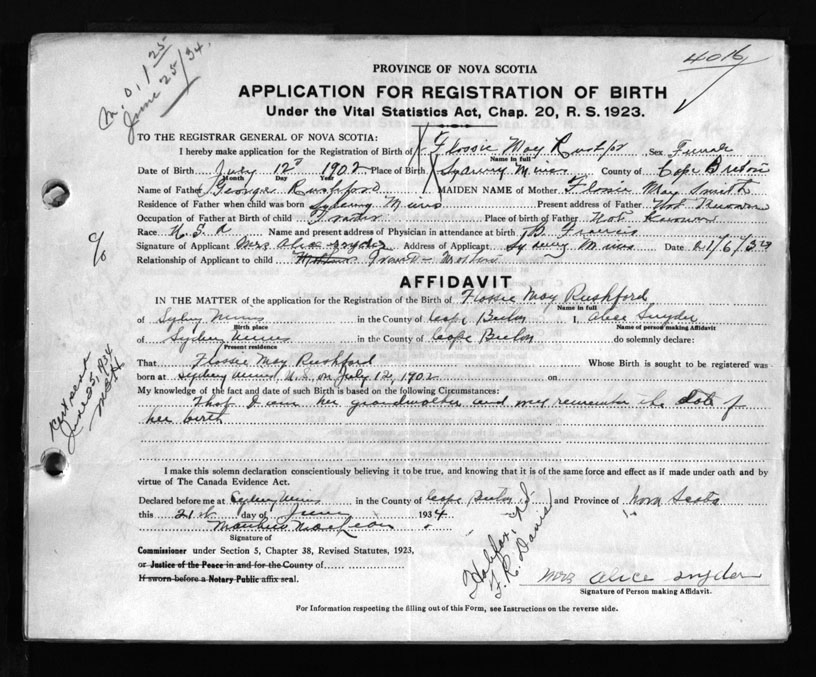 M.O. 1.25
June 25/34.
4016
PROVINCE OF NOVA SCOTIA
APPLICATION FOR REGISTRATION OF BIRTH
Under the Vital Statistics Act, Chap. 20, R. S. 1923.
TO THE REGISTRAR GENERAL OF NOVA SCOTIA:
I hereby make application for the Registration of Birth of Flossie May Sex Female
Name in full
Date of Birth July 12 1902 Place of Birth Sydney Mines County of Cape Breton
Month Day Year
Name of Father George Rushford MAIDEN NAME of Mother Flossie May Smith
Residence of Father when child was born Sydney Mines Present address of Father Not Known
Occupation of Father at Birth of child Place of birth of Father Not Known
Race Name and present address of Physician in attendance at birth B. Francis
Signature of Applicant Mrs Alice Snyder Address of Applicant Sydney Mines Date
Relationship of Applicant to child Grand Mother
AFFIDAVIT
IN THE MATTER of the application for the Registration of the Birth of Flossie May Rushford
Name in full
of Sydney Mines in the County of Cape Breton I, Alice Snyder
Birth place Name of person making Affidavit
of Sydney Mines in the County of Cape Breton do solemnly declare:
Present residence
That Flossie May Rushford Whose Birth is sought to be registered was
born at Sydney Mines, N.S. on July 12, 1902 on
My knowledge of the fact and date of such Birth is based on the following Circumstances:
That I am her grandmother and remember the date of
her birth
June 25, 1934
I make this solemn declaration conscientiously believing it to be true, and knowing that it is of the same force and effect as if made under oath and by
virtue of The Canada Evidence Act.
Declared before me at Sydney Mines in the County of Cape Breton and Province of Nova Scotia
this 21st day of June 1934
Signature of
Commissioner under Section 5, Chapter 38, Revised Statutes, 1923,
or Justice of the Peace in and for the County of
If sworn before a Notary Public affix seal.
Halifax, N.S.
F. R. Davis
Mrs Alice Snyder
Signature of Person making Affidavit.
For Information respecting the filling out of this Form, see Instructions on the reverse side.